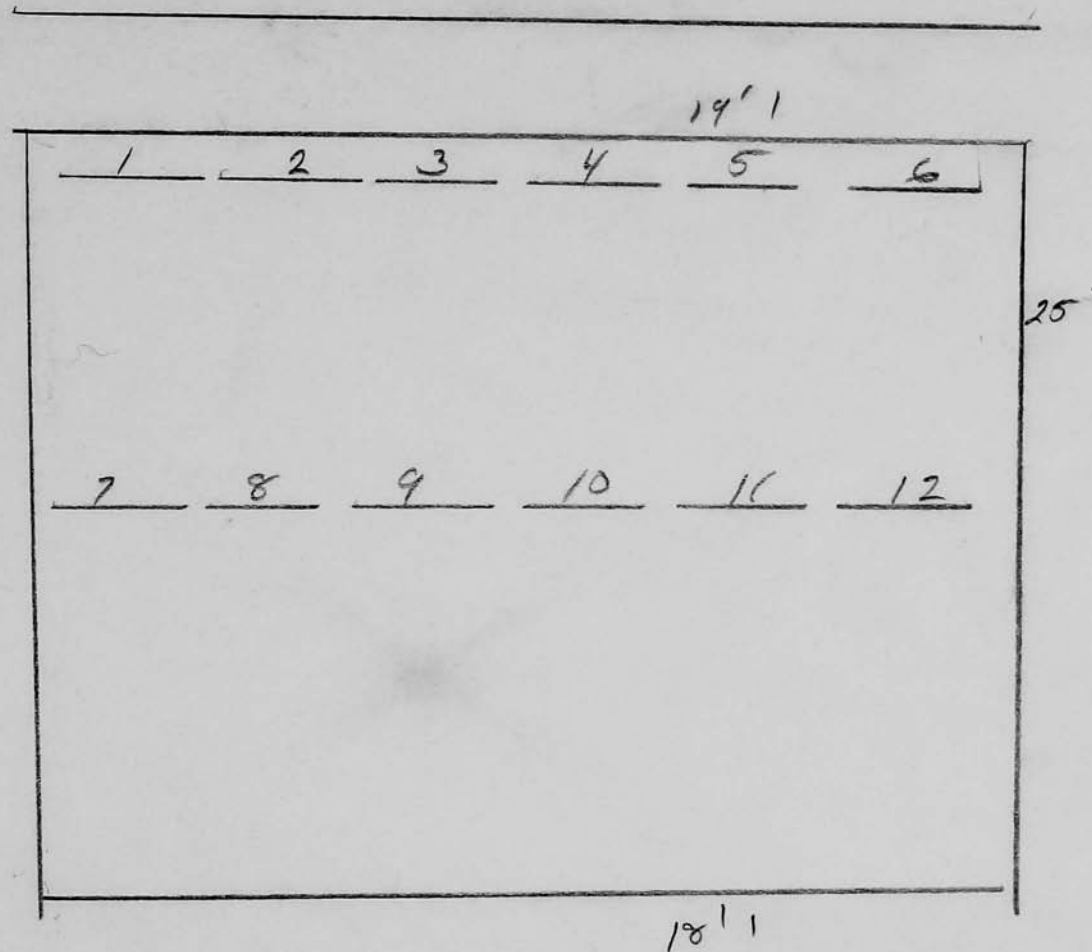 19' 1
1 2 3 4 5 6
25
7 8 9 10 11 12
18' 1